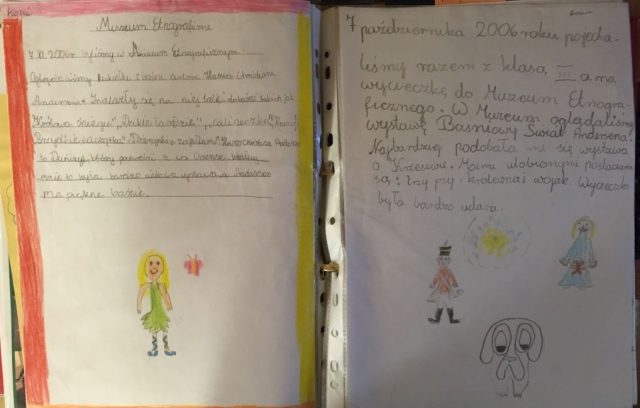 Muzeum Etnograficzne
7.XI.2006r. byliśmy w Muzeum Etnograficznym.
Oglądaliśmy kukiełki z bajek autora Hansa Christiana
Andersena. Znalazły się na niej lalki dobrane takich jak
"Królowa Śniegu", "Dzikie łabędzie", "Calineczka",
"Brzydkie kaczątko", "Dziewczynka z zapałkami". Hans Christian Andersen
to Duńczyk, który pochodzi z
mnie to była bardzo ciekawa wystawa, a Andersen
ma piękne baśnie.
7 października 2006 roku pojecha-
liśmy razem z klasą III a na
wycieczkę do Muzeum Etnogra-
ficznego. W Muzeum oglądaliśmy
wystawę Baśniowy Świat Andersena.
Najbardziej podobała mi się wystawa
o Krzesiwie. Moimi ulubionymi postaciami
są: trzy psy, królewna i wojak. Wycieczka
była bardzo udana.